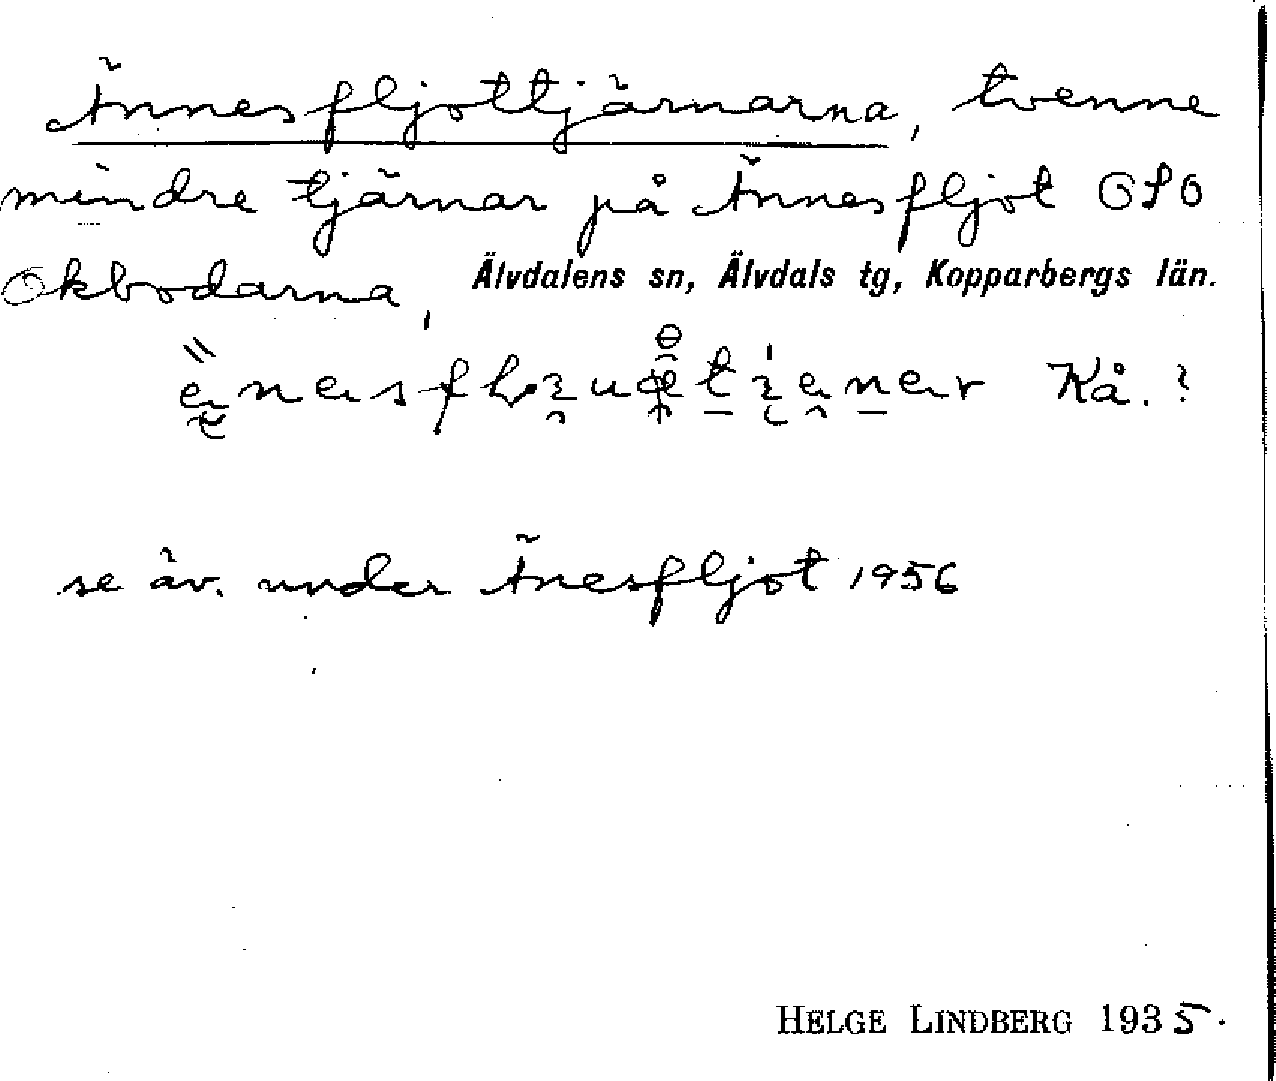 Ännesfljottjärnarna, tvenne
mindre tjärnar på Ännesfljot OSO
Okbodarna, Älvdalens sn, Älvdals tg, Kopparbergs län.
Kå. ?
se äv. under Änesfljot 1956
HELGE LINDBERG 1935.